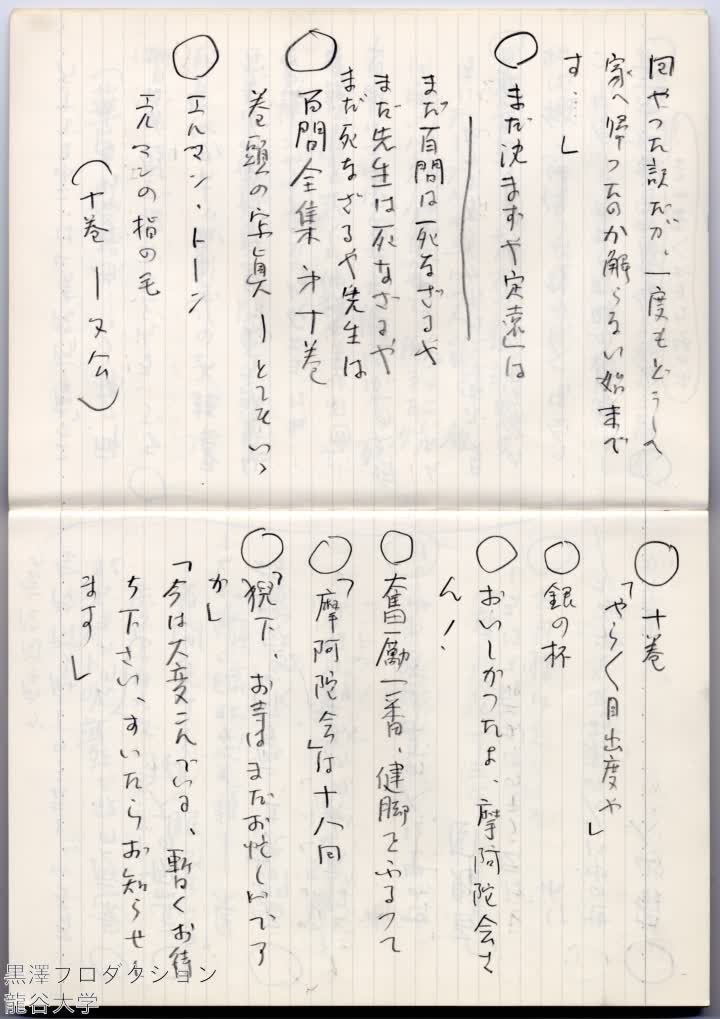 回やった訳だが、一度もどうして
家へ帰ったのか解らない始まで
す……」
○まだ沈まずや定遠は
まだ百間は死なざるや
まだ先生は死なざるや
まだ死なざるや先生は
○百間全集 第十巻
巻頭の写真ーとてもいゝ
○エルマン・トーン
エルマンの指の毛
（十巻ーヌ会）
○十巻
「やら〱目出度や」
○銀の杯
○おいしかったよ、摩阿陀会さ
ん！
○大奮励一番、健脚をふるって
○「摩阿陀会」は十八回
○「猊下、お寺はまだお忙しいです
か」
「今は大変こんでいる、暫くお待
ち下さい、すいたらお知らせし
ます」
黒澤プロダクション
龍谷大学